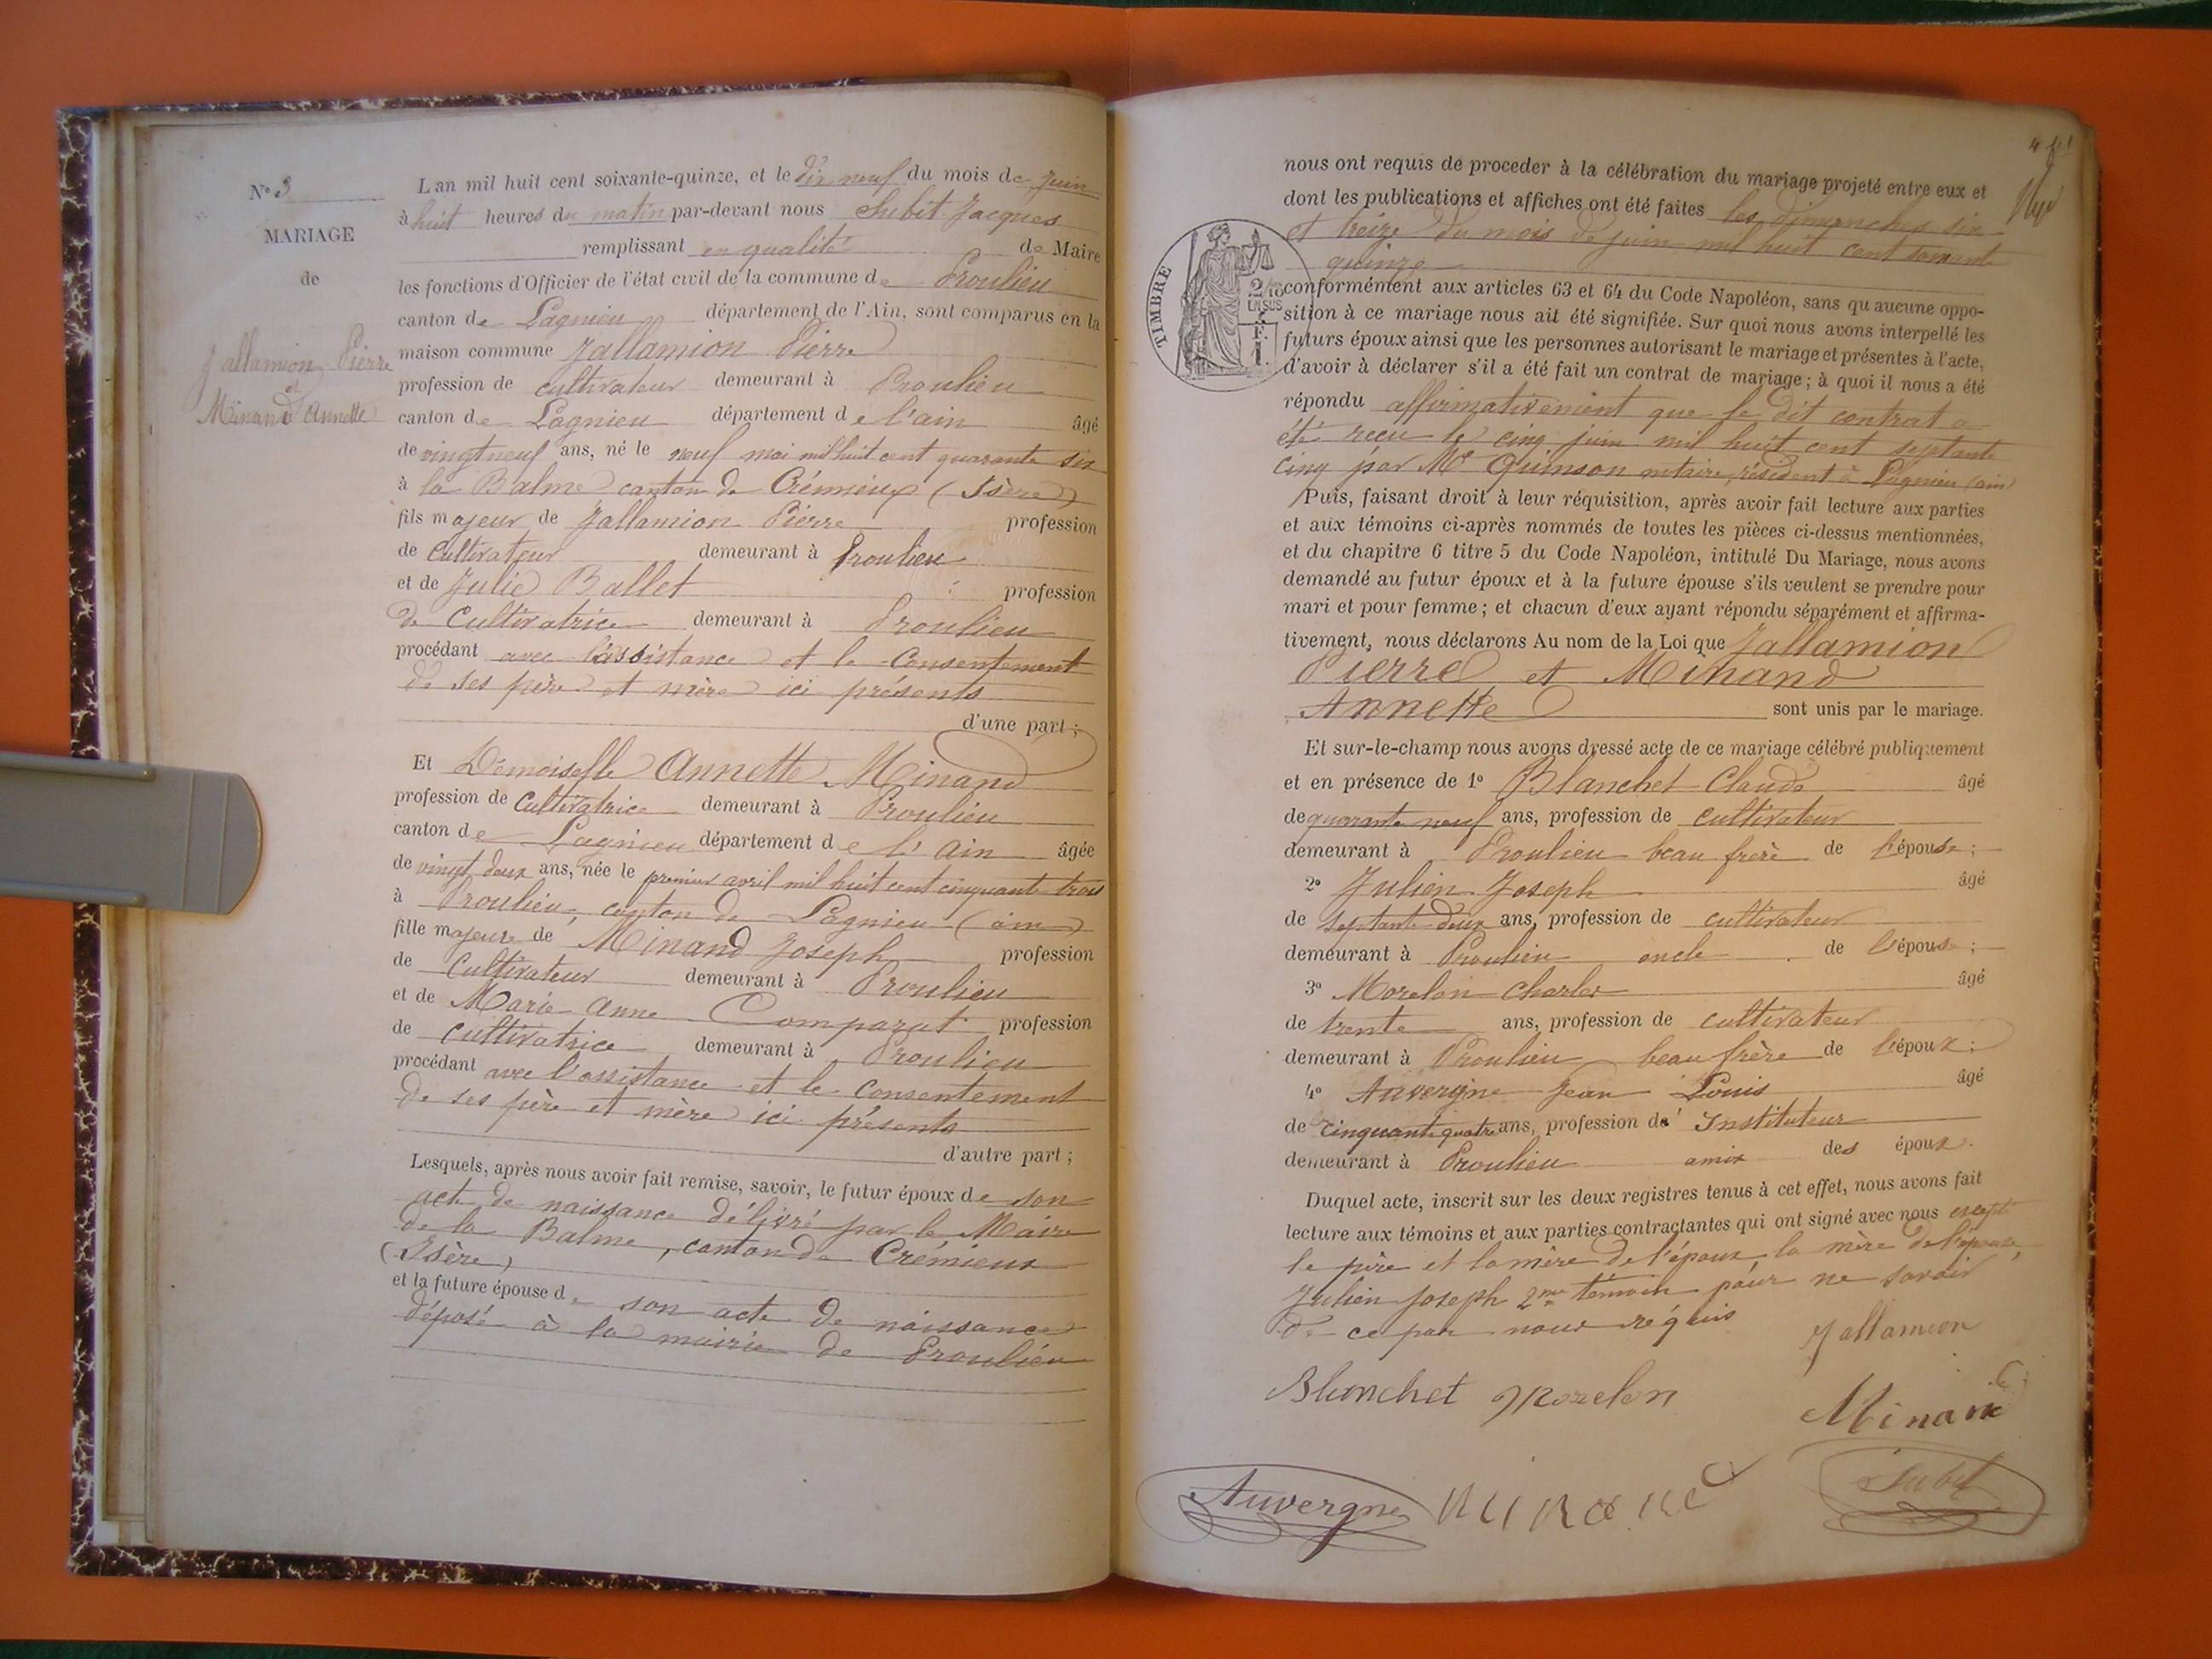 N° 3
MARIAGE
de
Jallamion Pierre
et
Minand Annette
L an mil huit cent soixante-quinze, et le dix neuf du mois de juin
à huit heures du matin par-devant nous Subit Jacques
remplissant en qualité de Maire
les fonctions d'Officier de l'état civil de la commune de Proulieu
canton de Lagnieu département de l'Ain, sont comparus en la
maison commune Jallamion Pierre
profession de cultivateur demeurant à Proulieu
canton de Lagnieu département de l'ain âgé
de vingt neuf ans, né le neuf mai mil huit cent quarante six
à la Balme canton de Crémieux (Isère)
fils majeur de Jallamion Pierre profession
de Cultivateur demeurant à Proulieu
et de Julie Ballet profession
de Cultivatrice demeurant à Proulieu
procédant avec l'assistance et le Consentement
de ses père et mère ici présents
d'une part ;
Et Demoiselle Annette Minand
profession de Cultivatrice demeurant à Proulieu
canton de Lagnieu département de l'Ain âgée
de vingt deux ans, née le premier avril mil huit cent cinquante trois
à Proulieu, canton de Lagnieu (ain)
fille majeure de Minand Joseph profession
de Cultivateur demeurant à Proulieu
et de Marie Anne Comparat profession
de cultivatrice demeurant à Proulieu
procédant avec l'assistance et le Consentement
de ses père et mère ici présents
d'autre part ;
Lesquels, après nous avoir fait remise, savoir, le futur époux de son
acte de naissance délivré par le Maire
de la Balme, canton de Crémieux
(Isère)
et la future épouse de son acte de naissance
déposé à la mairie de Proulieu
nous ont requis de proceder à la célébration du mariage projeté entre eux et
dont les publications et affiches ont été faites les dimanches six
et treize du mois de juin mil huit cent soixante
quinze
TIMBRE
2/10
EN SUS
conformément aux articles 63 et 64 du Code Napoléon, sans qu aucune oppo-
sition à ce mariage nous ait été signifiée. Sur quoi nous avons interpellé les
futurs époux ainsi que les personnes autorisant le mariage et présentes à l'acte,
d'avoir à déclarer s'il a été fait un contrat de mariage ; à quoi il nous a été
répondu affirmativement que le dit contrat a
été reçu le cinq juin mil huit cent septante
cinq par Me Quinson notaire, résident à Lagnieu (ain)
Puis, faisant droit à leur réquisition, après avoir fait lecture aux parties
et aux témoins ci-après nommés de toutes les pièces ci-dessus mentionnées,
et du chapitre 6 titre 5 du Code Napoléon, intitulé Du Mariage, nous avons
demandé au futur époux et à la future épouse s'ils veulent se prendre pour
mari et pour femme ; et chacun d'eux ayant répondu séparément et affirma-
tivement, nous déclarons Au nom de la Loi que Jallamion
Pierre et Minand
Annette sont unis par le mariage.
Et sur-le-champ nous avons dressé acte de ce mariage célébré publiquement
et en présence de 1° Blanchet Claude âgé
de quarante neuf ans, profession de cultivateur
demeurant à Proulieu beau frère de l'épouse ;
2° Julien Joseph âgé
de septante deux ans, profession de cultivateur
demeurant à Proulieu oncle de l'épouse ;
3° Morelon Charles âgé
de trente ans, profession de cultivateur
demeurant à Proulieu beau frère de l'époux ;
4° Auvergne Jean Louis âgé
de cinquante quatre ans, profession de Instituteur
demeurant à Proulieu amis des époux.
Duquel acte, inscrit sur les deux registres tenus à cet effet, nous avons fait
lecture aux témoins et aux parties contractantes qui ont signé avec nous excepté
le père et la mère de l'époux, la mère de l'épouse,
Julien Joseph 2me témoin pour ne savoir
de ce par nous réquis
Jallamion
Blanchet Morelon
Minand
Auvergne Minand Subit